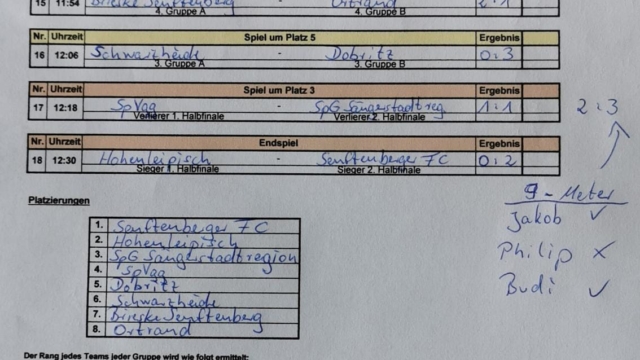 15 11:54 Brieske Senftenberg - Ortrand 2:1
4. Gruppe A 4. Gruppe B
Nr. Uhrzeit Spiel um Platz 5 Ergebnis
16 12:06 Schwarzheide - Dobritz 0:3
3. Gruppe A 3. Gruppe B
Nr. Uhrzeit Spiel um Platz 3 Ergebnis
17 12:18 SpVgg - SpG Sängerstadtreg. 1:1 2:3
Verlierer 1. Halbfinale Verlierer 2. Halbfinale
Nr. Uhrzeit Endspiel Ergebnis
18 12:30 Hohenleipisch - Senftenberger FC 0:2
Sieger 1. Halbfinale Sieger 2. Halbfinale
9-Meter
Jakob ✓
Philip ✗
Budi ✓
Platzierungen
1. Senftenberger FC
2. Hohenleipisch
3. SpG Sängerstadtregion
4. SpVgg
5. Dobritz
6. Schwarzheide
7. Brieske Senftenberg
8. Ortrand
Der Rang jedes Teams jeder Gruppe wird wie folgt ermittelt: